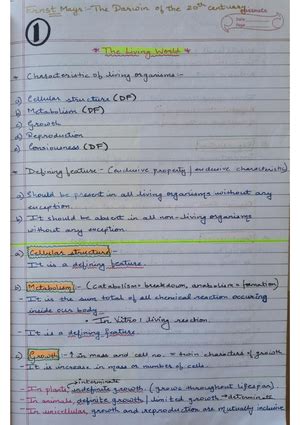 Ernst Mayr :- The Darwin of the 20th century
1
* The Living World *
* Characteristic of living organisms :-
a) Cellular structure (DF)
b) Metabolism (DF)
c) Growth
d) Reproduction
e) Consiousness (DF)
* Defining feature - (exclusive property / exclusive characteristic)
a) Should be present in all living organisms without any
exception.
b) It should be absent in all non-living organisms
without any exception.
a) Cellular structure :-
It is a defining feature.
b) Metabolism :- (Catabolism = breakdown, anabolism = formation)
- It is the sum total of all chemical reaction occuring
inside our body
In Vitro : living reaction.
- It is a defining feature
c) Growth :- ↑ in mass and cell no. = twin characters of growth
- It is increase in mass or number of cells.
indeterminate
- In plants, indefinite growth. (grows throughout lifespan)
- In animals, definite growth / limited growth → determinate
- In unicellular, growth and reproduction are mutually inclusive